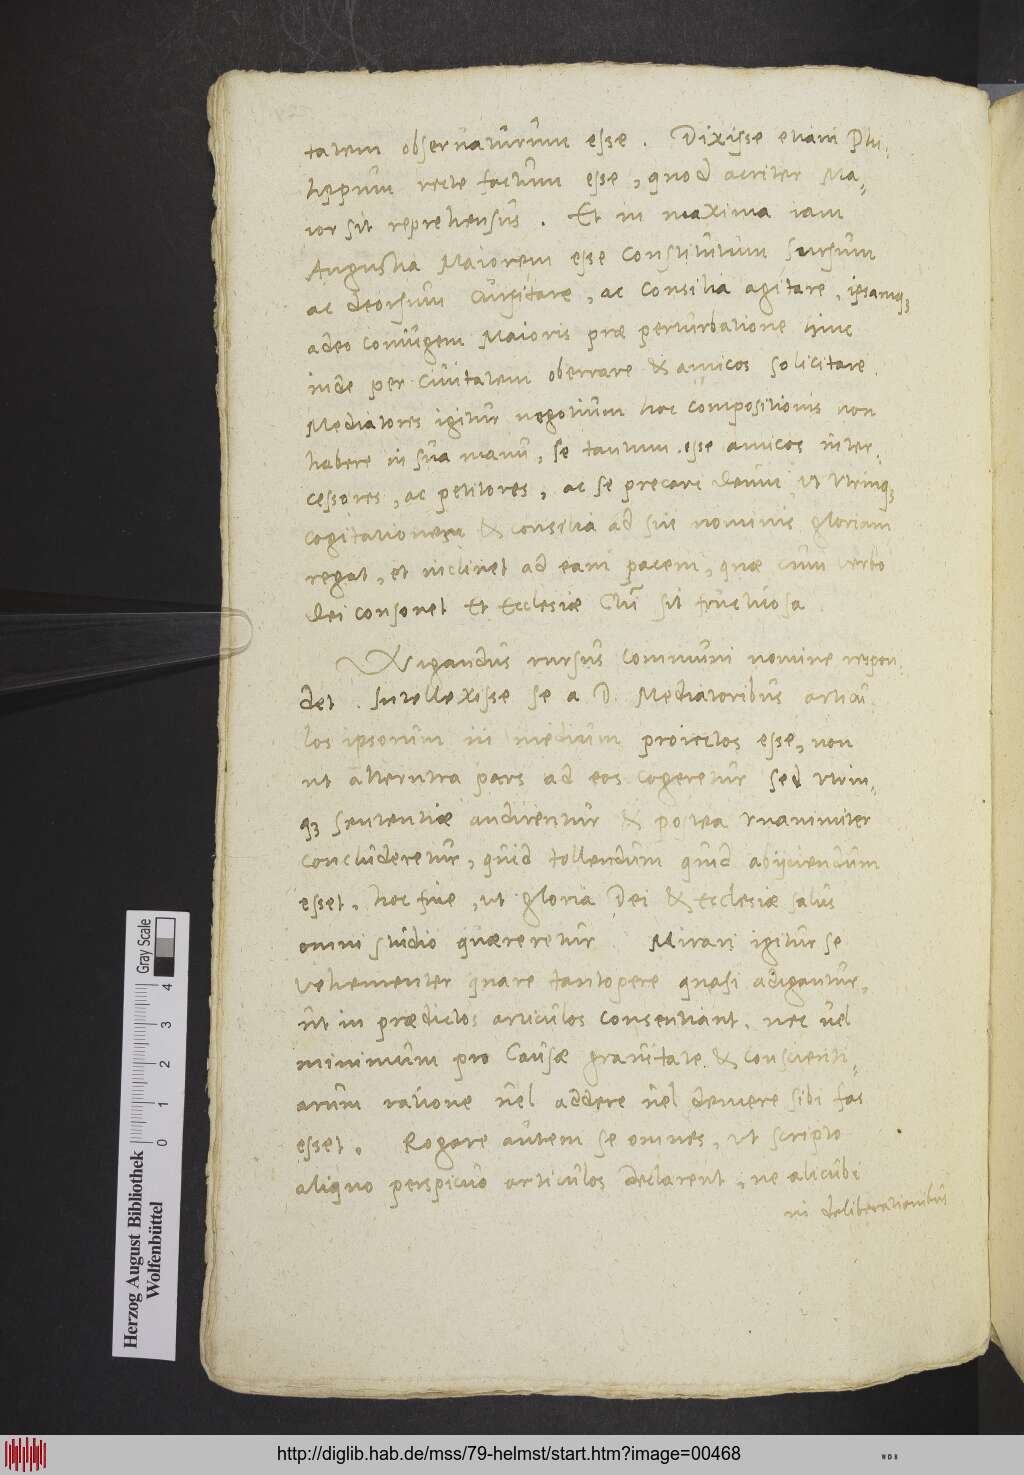 tatem obseruaturum esse. Dixisse etiam Phi-
lippum recte factum esse, quod acriter Ma-
ior sit reprehensus. Et in maxima iam
Angustia Maiorem esse constitutum sursum
ac deorsum cursitare, ac consilia agitare, ipsamq3
adeo coniugem Maioris præ perturbatione hinc
inde per ciuitatem oberrare & amicos solicitare.
Mediatores igitur negotium hoc compositionis non
habere in sua manu, se tantum esse amicos inter-
cessores, ac petitores, ac se precari deum, ut utrinq3
cogitationem & consilia ad sui nominis gloriam
regat, et inclinet ad eam pacem, quæ cum verbo
Dei consonet et Ecclesiæ Chri sit fructuosa
Wigandus rursus communi nomine respon-
det. Intellexisse se a D. Mediatoribus articu-
los ipsorum in medium proiectos esse, non
ut alterutra pars ad eos cogeretur sed utrin-
q3 sententiæ audirentur & postea vnanimiter
concluderetur, quid tollendum quid abijciendum
esset, hoc fine, ut gloria Dei & Ecclesiæ salus
omni studio quæreretur. Mirari igitur se
vehementer quare tantopere quasi adigantur,
ut in prædictos articulos consentiant, nec uel
minimum pro Causæ grauitate & conscienti-
arum ratione uel addere uel demere sibi fas
esset. Rogare autem se omnes, ut scripto
aliquo perspicuo articulos declarent, ne alicubi
in deliberationibus
Herzog August Bibliothek
Wolfenbüttel
Gray Scale
0 1 2 3 4
http://diglib.hab.de/mss/79-helmst/start.htm?image=00468